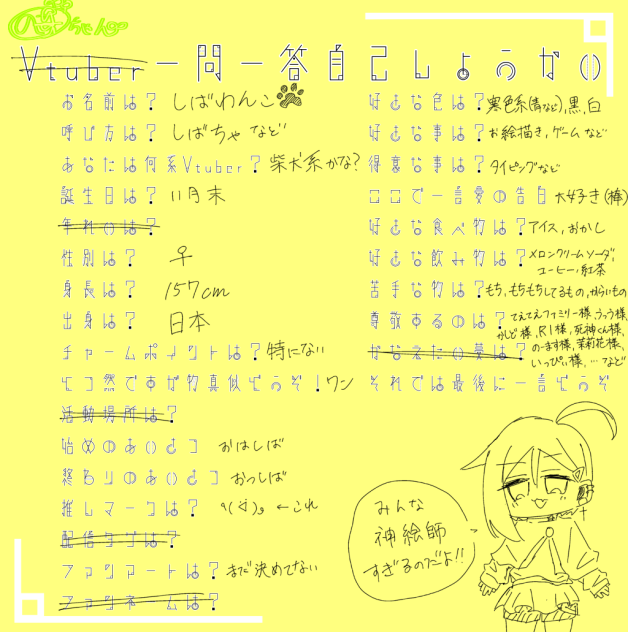 Vtuber一問一答自己しょうかい
お名前は？ しばわんこ
呼び方は？ しばちゃ など
あなたは何系Vtuber？ 柴犬系かな？
誕生日は？ 11月末
年れいは？
性別は？ ♀
身長は？ 157cm
出身は？ 日本
チャームポイントは？ 特にない
とつ然ですが物真似どうぞ！ ワン
活動場所は？
始めのあいさつ おはしば
終わりのあいさつ おっしば
推しマークは？ ←これ
配信タグは？
ファンアートは？ まだ決めてない
ファンネームは？
好きな色は？ 寒色系(青など),黒,白
好きな事は？ お絵描き,ゲームなど
得意な事は？ タイピングなど
ここで一言愛の告白 大好き(棒)
好きな食べ物は？ アイス,おかし
好きな飲み物は？ メロンクリームソーダ,
コーヒー,紅茶
苦手な物は？ もち,もちもちしてるもの,からいもの
尊敬するのは？ てえてえファミリー様,うっう様,
かしど様,RI様,死神くん様,
のーます様,茉莉花様,
いっぴ。様,…など
かなえたい夢は？
それでは最後に一言どうぞ
みんな
神絵師
すぎるのだよ!!